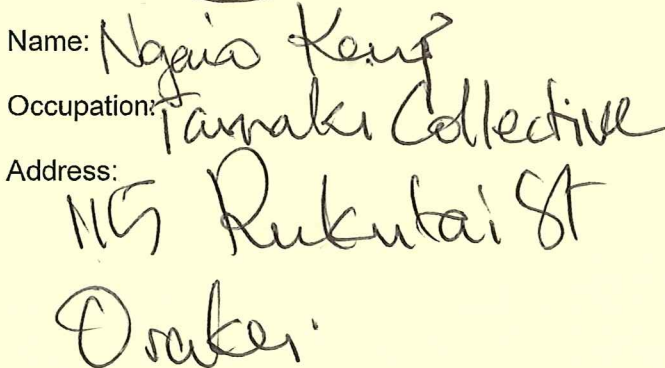 Name: Ngaio Kemp
Occupation: Tamaki Collective
Address:
115 Rukutai St
Orakei.